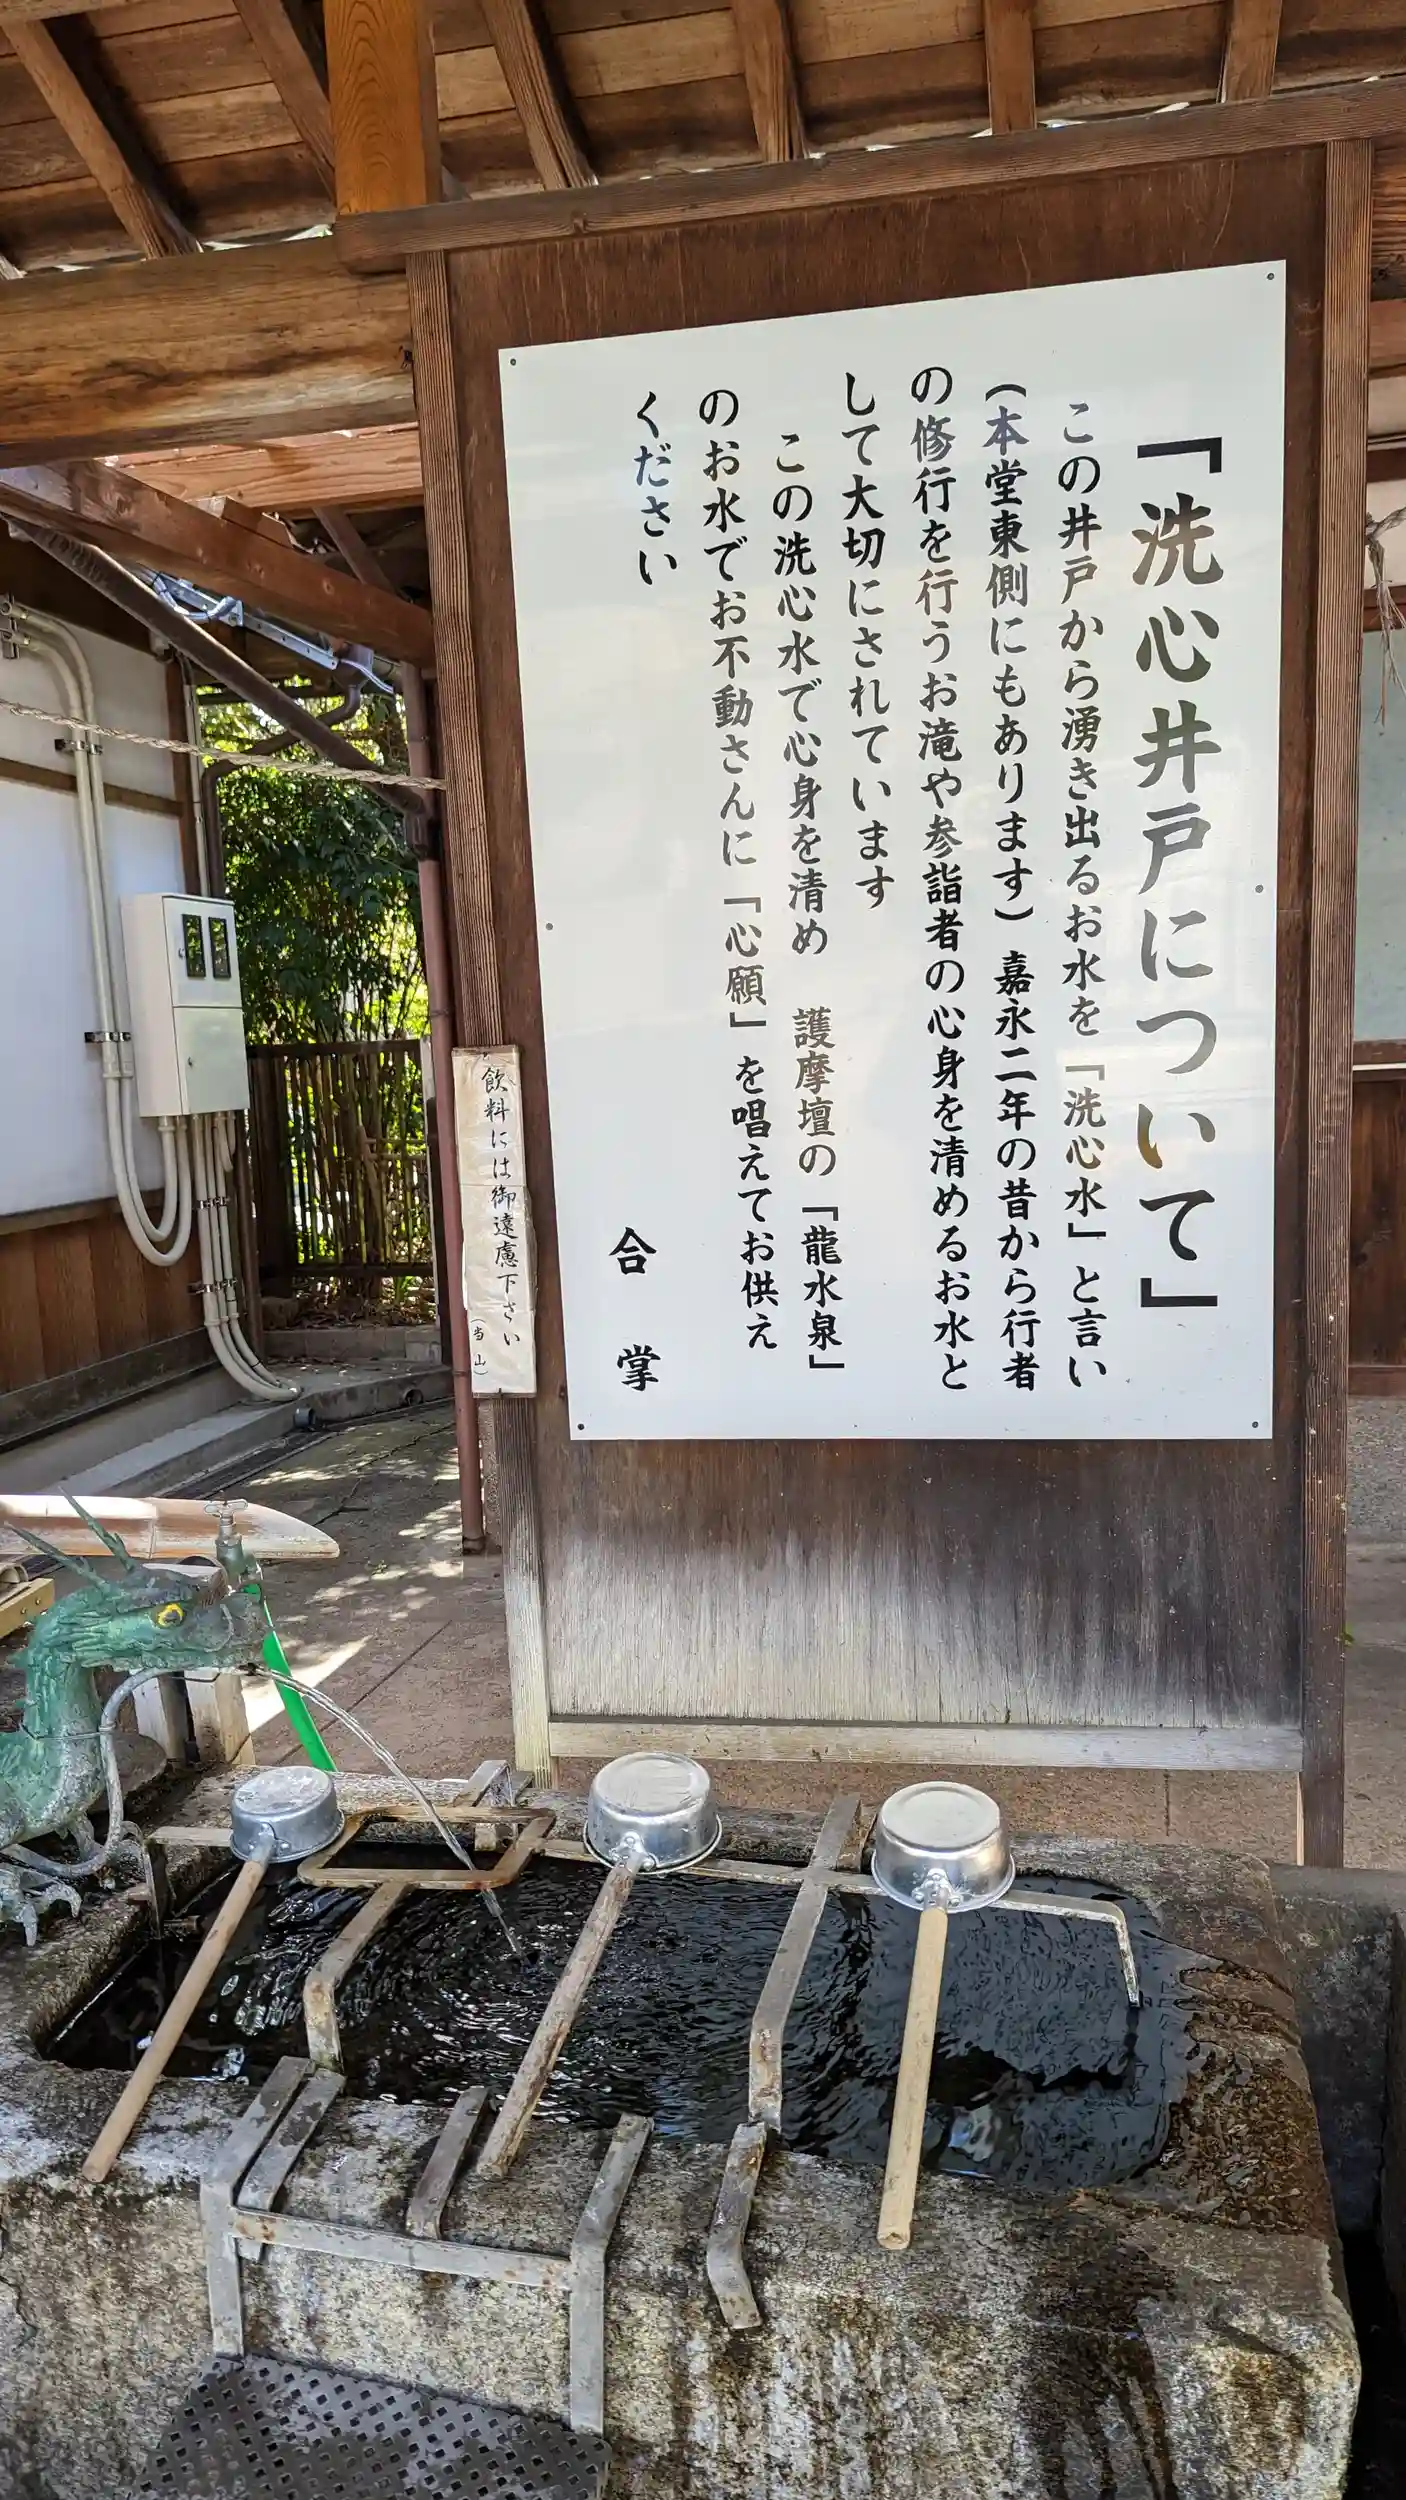 「洗心井戸について」
この井戸から湧き出るお水を「洗心水」と言い
(本堂東側にもあります)嘉永二年の昔から行者
の修行を行うお滝や参詣者の心身を清めるお水と
して大切にされています
この洗心水で心身を清め　護摩壇の「龍水泉」
のお水でお不動さんに「心願」を唱えてお供え
ください
合掌
飲料には御遠慮下さい
(当山)